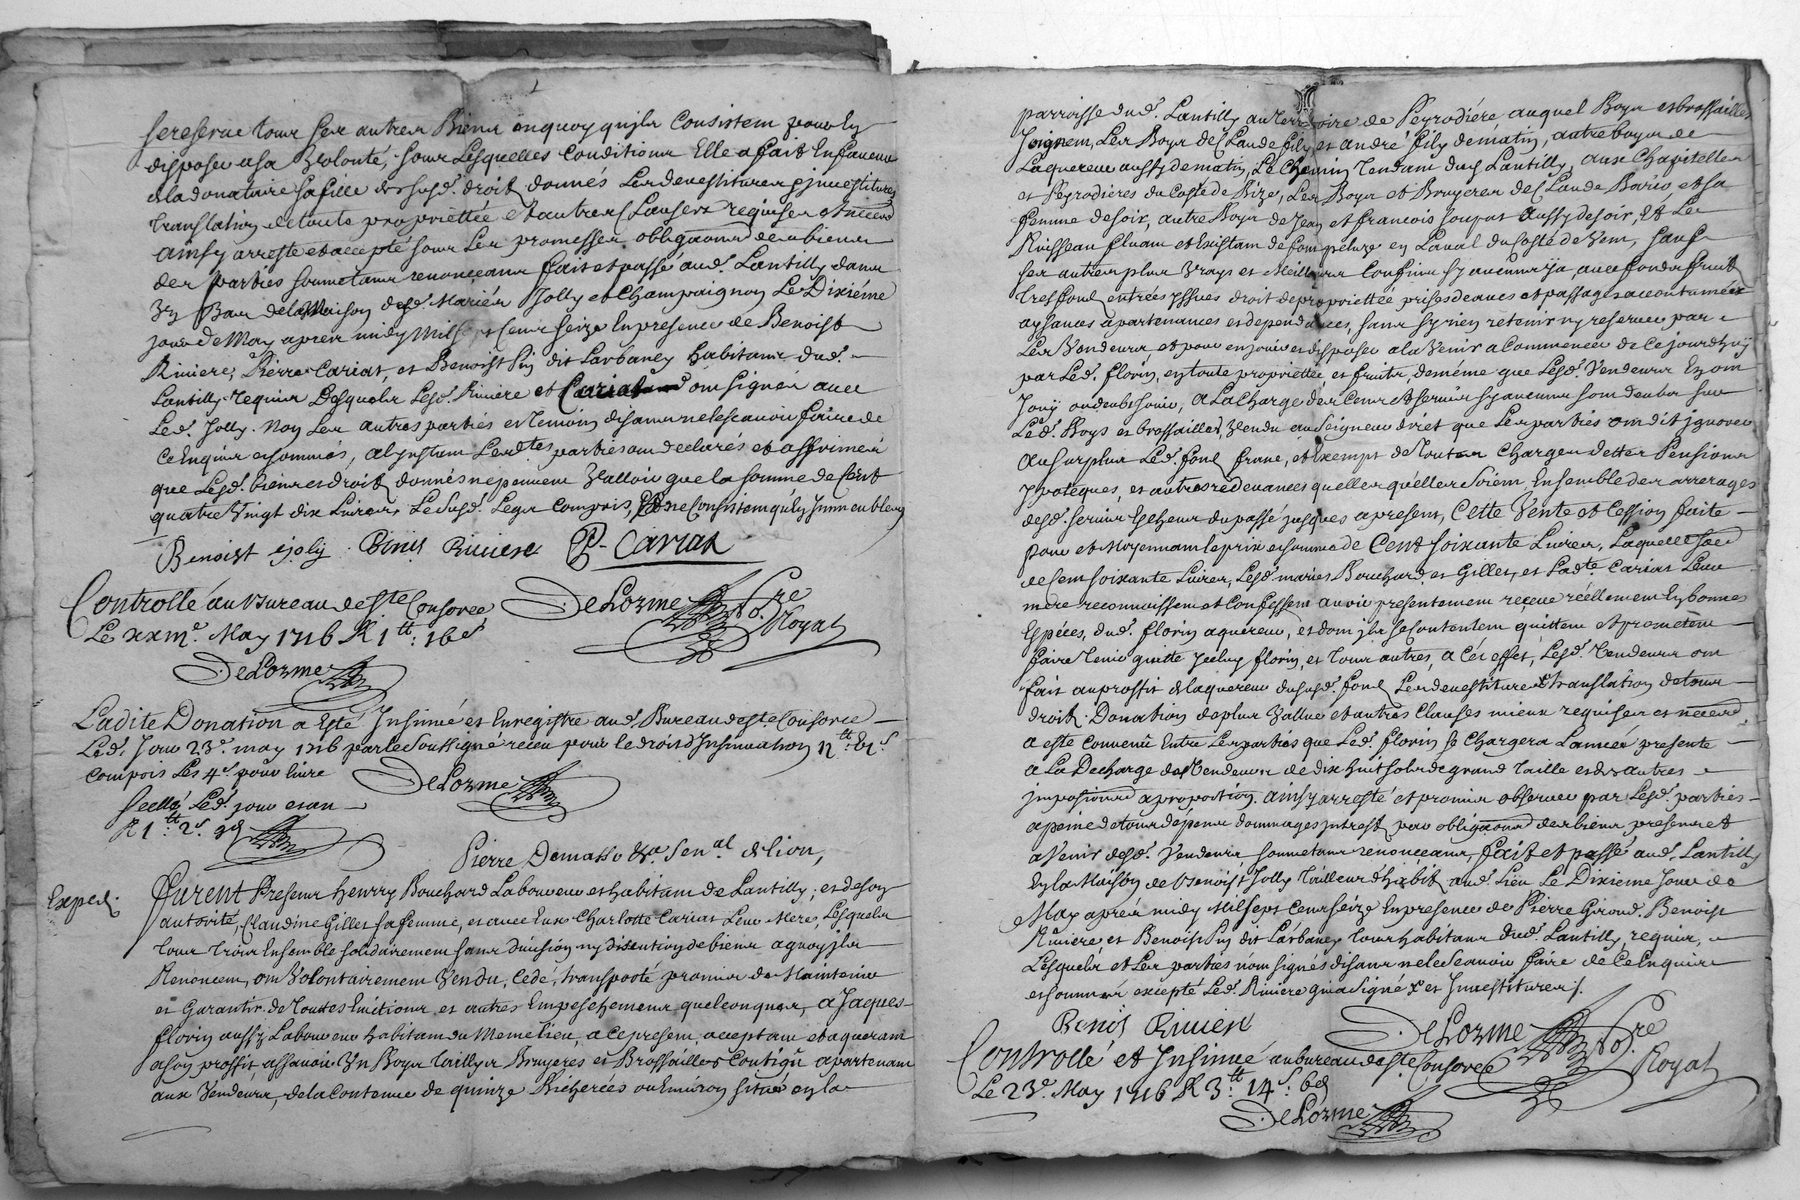 se reserve tous ses autres Biens en quoy quils Consistent pour En
disposer a sa Volonté, sous Lesquelles conditions Elle a fait En faveur
de la donataire sa fille des susd. droit donnés Les devestitures jnvestitures
translation de toute propriettée et autres Clauses requises et necess
ainsy arresté et accepté sous Les promesses obligaons de biens
des parties soumetans renonçeans fait et passé aud. Lantilly dans
Un Bas de la Maison desd. Mariés Jolly et Champaignon Le Dixiéme
jour de May apres midy Mil sept Cens seize En presence de Benoist
Riviere, Pierre Cariat, et Benoist Pin dit Larbaney habitans dud.
Lantilly requis Desquels Lesd. Riviere et Cariat ont signés avec
Led. Jolly. Non Les autres parties et temoin disans ne le scavoir faire de
Ce Enquis et sommés, a l'instant Lesdtes parties ont declarés et affirmés
que Lesd. biens et droit donnés ne peuvent Valloir que la somme de Cent
quatre Vingt dix Livres, Le susd. Legat compris, et ne Consistent qu'en Immeubles
Benoist ejoly Benis Riviere P. Cariat
Controllé au Bureau de Ste Consorce
Le xxme. May 1716 R 1tt: 16s
DeLorme Nore Royal
DeLorme
Ladite Donation a Esté Insinué et Enregistré aud. Bureau de Ste Consorce
Led. Jour 23e. may 1716 par le Soussigné receu pour le droit d'Insinuation
compris Les 4s. pour livre
DeLorme
Scellé Led. jour et an
R 1tt: 2s. 9d
Pierre Demasso &a Senal de lion,
Exped.
Furent Presens henrry Bouchard Laboureur et habitant de Lantilly, et de son
autorité, Claudine Gilles sa femme, et avec Eux Charlotte Cariat Leur Mere, Lesquels
tous trois Ensemble solidairement sans division ny discution de biens a quoy jls
Renoncent, ont Volontairement Vendu, Cedé, transporté promis de Maintenir
et Garantir de Toutes Evictions et autres Empeschemens quelconques, a Jaques
florin aussy Laboureur habitant du Meme Lieu, a ce present, acceptant et aquerant
a son proffit, assavoir Un Boys taillys Bruyeres et Brossailles Contigû apartenant
aux Vendeurs, de la Contenue de quinze Bicherées ou Environ situé en la
parroisse dud. Lantilly au Terrtoire de Peyrodiére auquel Boys et brossailles
Joignent, Les Boys de Claude fily et andré fily de matin, autre boys de
Laquereur aussy de matin, Le Chemin Tendant dud. Lantilly, aux Chapitelles
et Peyrodieres du Costé de Bize, Les Boys et Bruyeres de Claude Boriès et sa
femme de soir, autre Boys de Jean et francois soupat aussy de soir, Et Les
Ruisseau fluant et Existant de Compeluze en Laval du Costé de Vent, sauf
ses autres plus Vrays et Meilleurs Confins sy aucuns y a, avec fonds fruit
tresfond entrées yssues droit de propriettée prises deaues et passages accoutumées
aysances apartenances et dependances, sans sy rien retenir ny reserver par
Les Vendeurs, et pour en jouir et disposer a la Venir a Commencer de Ce jourdhuy
par Led. florin, en toute propriettée et fruits, de méme que Lesd. Vendeurs En ont
Jouy ou deub jouir, a La Charge des Cens et servis sy aucuns sont deubs sur
Led. Boys et brossailles Vendu au seigneur direct que Les parties ont dit jgnorer
Au surplus Led. fond franc, et Exempt de Toutes Charges dettes Pensions
Ypoteques, et autres redevances quelles quelles soient Ensemble des arrerages
desd. servis Escheus du passé jusques a present, Cette Vente et Cession faite
pour et Moyennant le prix et somme de Cent soixante Livres, Laquelle soe
de Cent soixante Livres, Lesd. mariés Bouchard, et Gilles, et Ladte Cariat Leur
mere reconnoissent et Confessent avoir presentement reçeue réellement En bonnes
Espéces, dud. florin aquereur, et dont jls se Contentent quittent et promettent
faire tenir quitte jceluy florin, et tous autres, a Cét effet, Lesd. Vendeurs ont
fait au proffit de laquereur du susd. fond Les devestitures translation de tous
droit. Donation de plus Vallue et autres Clauses mieux requises et necess.
a esté convenu Entre Les parties que Led. florin se Chargera Lannée presente
a La Decharge des Vendeurs de dix huit sols de grand Taille et des autres
jmpositions a proportion. ainsy arresté et promis observer par Lesd. parties
a peine de tous dépens dommages jnterest par obligaons des biens presens et
a Venir desd. Vendeurs soumetans renonceans, fait et passé aud. Lantilly
En la Maison de Benoist Jolly tailleur d'habit aud. Lieu Le Dixieme Jour de
May apres midy Mil sept Cens seize En presence de Pierre Giroud. Benoist
Riviere, et Benoist Pin dit Larbaney tous habitans dud. Lantilly, requis,
Lesquels et Les parties n'ont signés disans ne le Scavoir faire de Ce Enquis
et sommés excepté Led. Riviere qui a signé et Jnvestitures /.
Benis Riviere
DeLorme Nore Royal
Controllé et Insinué au bureau de Ste Consorce
Le 23e. May 1716 R 3tt: 14s. 6d
DeLorme